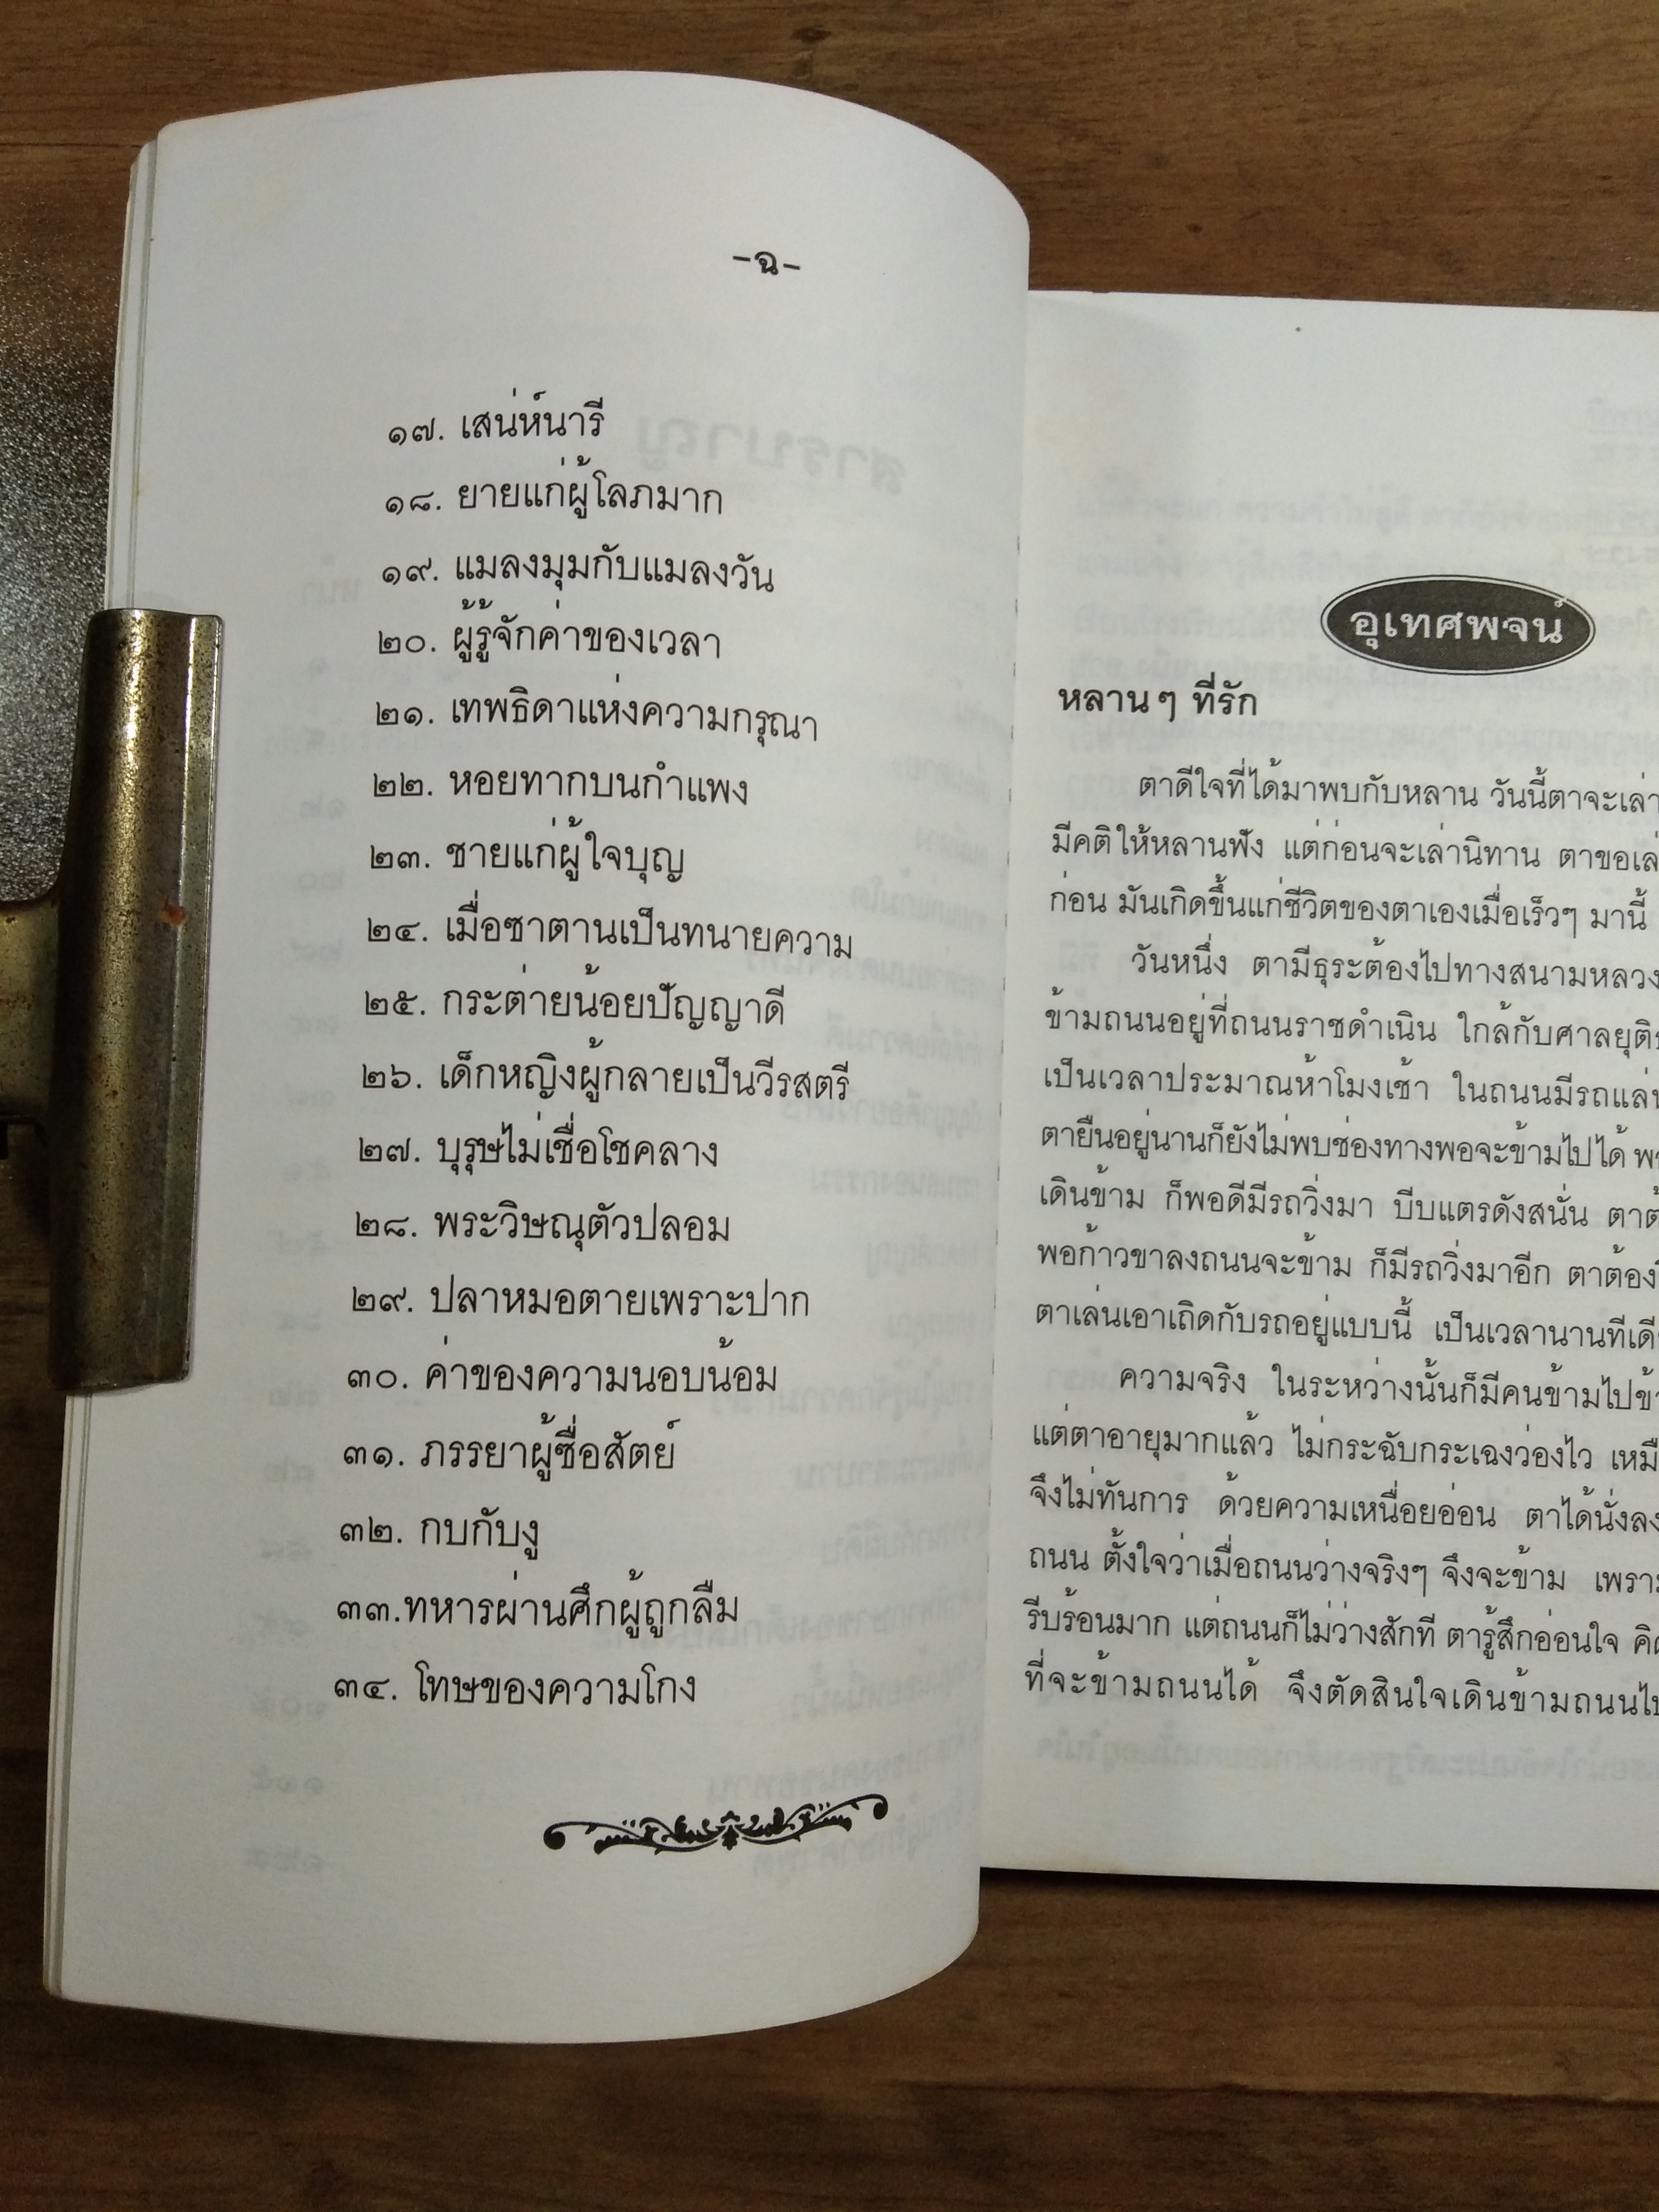 -ฉ-
๑๗. เสน่ห์นารี
๑๘. ยายแก่ผู้โลภมาก
๑๙. แมลงมุมกับแมลงวัน
๒๐. ผู้รู้จักค่าของเวลา
๒๑. เทพธิดาแห่งความกรุณา
๒๒. หอยทากบนกำแพง
๒๓. ชายแก่ผู้ใจบุญ
๒๔. เมื่อซาตานเป็นทนายความ
๒๕. กระต่ายน้อยปัญญาดี
๒๖. เด็กหญิงผู้กลายเป็นวีรสตรี
๒๗. บุรุษไม่เชื่อโชคลาง
๒๘. พระวิษณุตัวปลอม
๒๙. ปลาหมอตายเพราะปาก
๓๐. ค่าของความนอบน้อม
๓๑. ภรรยาผู้ซื่อสัตย์
๓๒. กบกับงู
๓๓.ทหารผ่านศึกผู้ถูกลืม
๓๔. โทษของความโกง
อุเทศพจน์
หลานๆ ที่รัก
ตาดีใจที่ได้มาพบกับหลาน วันนี้ตาจะเล่า
มีคติให้หลานฟัง แต่ก่อนจะเล่านิทาน ตาขอเล่
ก่อน มันเกิดขึ้นแก่ชีวิตของตาเองเมื่อเร็วๆ มานี้
วันหนึ่ง ตามีธุระต้องไปทางสนามหลวง
ข้ามถนนอยู่ที่ถนนราชดำเนิน ใกล้กับศาลยุติ
เป็นเวลาประมาณห้าโมงเช้า ในถนนมีรถแล่น
ตายืนอยู่นานก็ยังไม่พบช่องทางพอจะข้ามไปได้
เดินข้าม ก็พอดีมีรถวิ่งมา บีบแตรดังสนั่น
พอก้าวขาลงถนนจะข้าม ก็มีรถวิ่งมาอีก ตาต้อง
ตาเล่นเอาเถิดกับรถอยู่แบบนี้ เป็นเวลานานทีเดี
ความจริง ในระหว่างนั้นก็มีคนข้ามไปข้า
แต่ตาอายุมากแล้ว ไม่กระฉับกระเฉงว่องไว เหมื
จึงไม่ทันการ ด้วยความเหนื่อยอ่อน ตาได้นั่งลง
ถนน ตั้งใจว่าเมื่อถนนว่างจริงๆ จึงจะข้าม เพรา
รีบร้อนมาก แต่ถนนก็ไม่ว่างสักที ตารู้สึกอ่อนใจ คิ
ที่จะข้ามถนนได้ จึงตัดสินใจเดินข้ามถนนไป